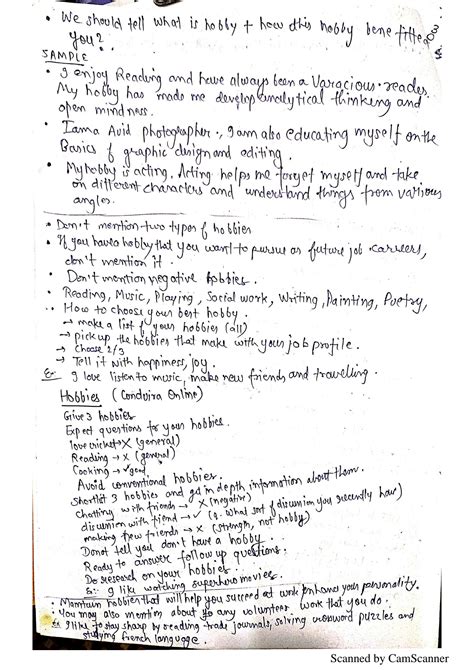 • We should tell what is hobby + how this hobby benefitted
you?
SAMPLE
• I enjoy Reading and have always been a Varacious reader.
My hobby has made me develop analytical thinking and
open mindness.
• I am a Avid photographer., I am also educating myself on the
Basics of graphic design and editing.
• My hobby is acting. Acting helps me forget myself and take
on different characters and understand things from various
angles.
• Don't mention two types of hobbies
• If you have hobby that you want to pursue as future job careers,
don't mention it.
• Don't mention negative hobbies.
• Reading, Music, Playing, Social work, Writing, Painting, Poetry,
• How to choose your best hobby.
→ make a list of your hobbies (all)
→ pick up the hobbies that make with your job profile.
→ Choose 2/3
→ Tell it with happiness, joy.
Ex I love listen to music, make new friends and travelling.
Hobbies (Conduira Online)
Give 3 hobbies
Expect questions for your hobbies.
love cricket → X (general)
Reading → X (general)
Cooking → ✓ good
Avoid conventional hobbies.
Shortlist 3 hobbies and get in depth information about them.
Chatting with friends → X (negative)
discussion with friend → ✓ (Q. What sort of discussion you recently have)
making new friends → X (strength, not hobby)
Do not tell you don't have a hobby.
Ready to answer follow up questions.
Do research on your hobbies.
Ex:- I like watching superhero movies.
• Maintain hobbies that will help you succeed at work, enhance your personality.
• You may also mention about any volunteer work that you do.
Ex I like to stay sharp by reading trade journals, solving crossword puzzles and
studying french language.
Scanned by CamScanner